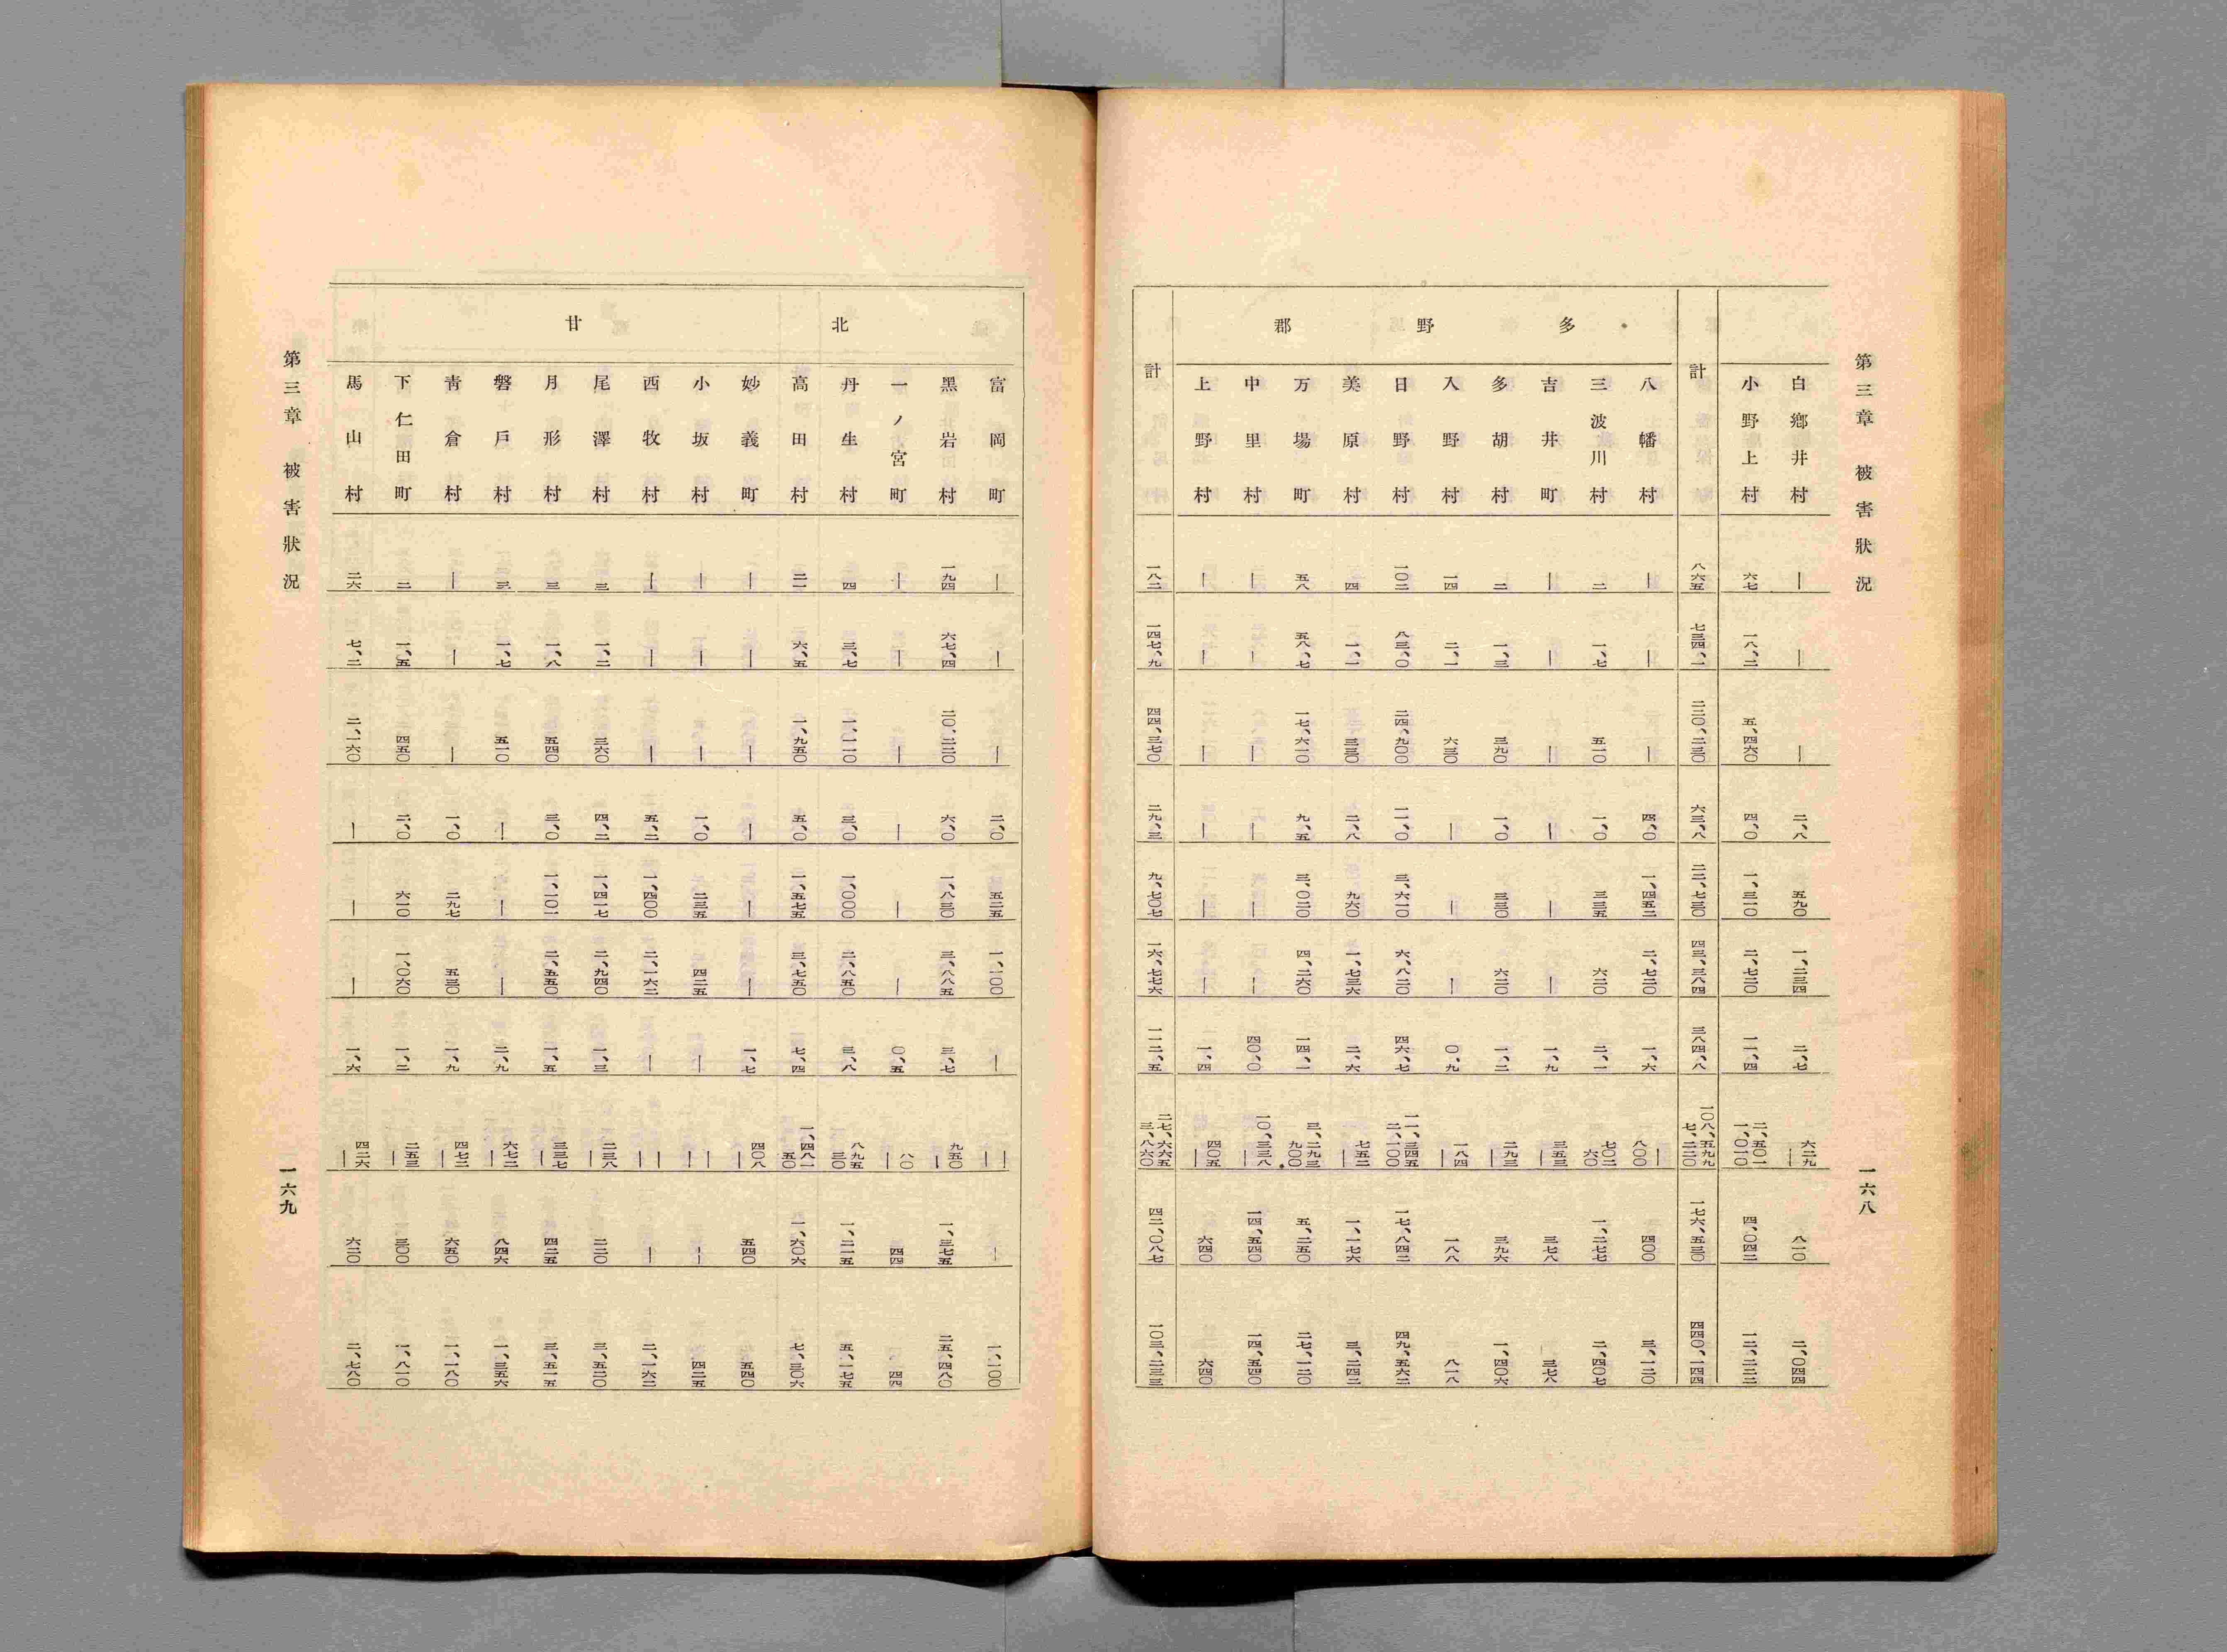 第三章 被害狀況
一六八
白鄕井村 ― ― ― 二、八 五九〇 一、二三四 二、七 六二九 ― 八一〇 二、〇四四
小野上村 六七 一八、二 五、四六〇 四、〇 一、三一〇 二、七二〇 一一、四 二、五〇一 一、〇一〇 四、〇四二 一二、二二二
計 八六五 七三四、一 二二〇、二三〇 六三、八 二二、七三〇 四三、三八四 三八四、八 一〇八、五九九 七、二二〇 一七六、五三〇 四四〇、一四四
多野郡
八幡村 ― ― ― 四、〇 一、四五二 二、七二〇 一、六 ― 八〇〇 四〇〇 三、一二〇
三波川村 二 一、七 五一〇 一、〇 三三五 六二〇 二、一 七〇二 六〇 一、二七七 二、四〇七
吉井町 ― ― ― ― ― ― 一、九 三五三 ― 三七八 三七八
多胡村 二 一、三 三九〇 一、〇 三三〇 六二〇 一、二 二九三 ― 三九六 一、四〇六
入野村 一四 二、一 六三〇 ― ― ― 〇、九 一八四 ― 一八八 八一八
日野村 一〇二 八三、〇 二四、九〇〇 一一、〇 三、六一〇 六、八二〇 四六、七 一一、三四五 二、一〇〇 一七、八四二 四九、五六二
美原村 四 一、一 三三〇 二、八 九六〇 一、七三六 二、六 七五二 ― 一、一七六 三、二四二
万場町 五八 五八、七 一七、六一〇 九、五 三、〇二〇 四、二六〇 一四、一 三、二九三 九〇〇 五、二五〇 二七、一二〇
中里村 ― ― ― ― ― ― 四〇、〇 一〇、三三八 ― 一四、五四〇 一四、五四〇
上野村 ― ― ― ― ― ― 一、四 四〇五 ― 六四〇 六四〇
計 一八二 一四七、九 四四、三七〇 二九、三 九、七〇七 一六、七七六 一一二、五 二七、六六五 三、八六〇 四二、〇八七 一〇三、二三三
北甘
富岡町 ― ― ― 二、〇 五二五 一、一〇〇 ― ― ― ― 一、一〇〇
黑岩村 一九四 六七、四 二〇、二二〇 六、〇 一、八三〇 三、八八五 三、七 九五〇 ― 一、三七五 二五、四八〇
一ノ宮町 ― ― ― ― ― ― 〇、五 八〇 ― 四四 四四
丹生村 四 三、七 一、一一〇 三、〇 一、〇〇〇 二、八五〇 三、八 八九五 三〇 一、二一五 五、一七五
高田村 二一 六、五 一、九五〇 五、〇 一、五七五 三、七五〇 七、四 一、四八一 五〇 一、六〇六 七、三〇六
妙義町 ― ― ― ― ― ― 一、七 四〇八 ― 五四〇 五四〇
小坂村 ― ― ― 一、〇 二三五 四二五 ― ― ― ― 四二五
西牧村 ― ― ― 五、二 一、四〇〇 二、一六二 ― ― ― ― 二、一六二
尾澤村 三 一、二 三六〇 四、二 一、四一七 二、九四〇 一、三 二三八 ― 二二〇 三、五二〇
月形村 三 一、八 五四〇 三、〇 一、一〇一 二、五五〇 一、五 三三七 ― 四二五 三、五一五
磐戶村 三 一、七 五一〇 ― ― ― 二、九 六七二 ― 八四六 一、三五六
靑倉村 ― ― ― 一、〇 二九七 五三〇 一、九 四七二 ― 六五〇 一、一八〇
下仁田町 二 一、五 四五〇 二、〇 六一〇 一、〇六〇 一、二 二五三 ― 三〇〇 一、八一〇
馬山村 二六 七、二 二、一六〇 ― ― ― 一、六 四二六 ― 六二〇 二、七八〇
第三章 被害狀況
一六九